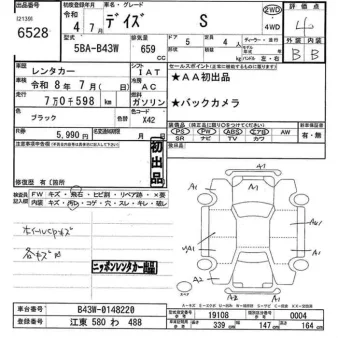 出品番号
初度登録年月
車名・グレード
評価点
6528
令和 4年 7月
デイズ
S
2WD
4WD
型式
5BA-B43W
排気量
659 cc
ドア 5
定員 4
外装 内装
B B
車歴
レンタカー
シフト
IAT
セールスポイント
★AA初出品
車検
令和 8年 7月
冷房
AC
走行
7万0千598 km
燃料
ガソリン
★バックカメラ
色
ブラック
カラーNo.
X42
装備品
PS PW ABS エアB AW
SR ナビ TV カワ
有・無
R券
5,990円
注意事項申告欄
初出品
修復歴 有
検査員記入欄
FW キズ・飛石・ヒビ割・リペア跡・×要
内装 キズ・汚レ・コゲ・穴・スレ・キレ・破レ
ホイールCPキズ
各キズ凹
ニッポンレンタカー出品
A1
車台番号
B43W-0148220
登録番号
江東 580 わ 488
型式指定番号
19108
類別区分番号
0004
長さ 339 cm
幅 147 cm
高さ 164 cm